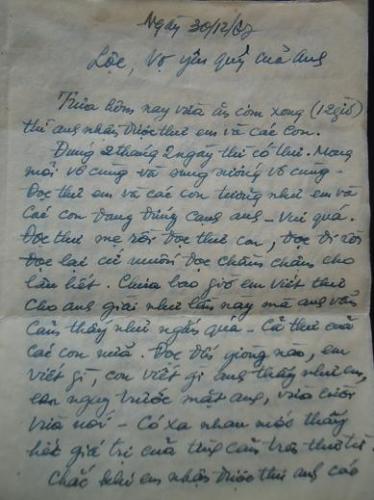 Ngày 30/12/67
Lộc, Vợ yêu quý của anh
Trưa hôm nay vừa ăn cơm xong (12 giờ)
thì anh nhận được thư em và các con.
Đúng 2 tháng 2 ngày thì có thư. Mong
mỏi vô cùng và sung sướng vô cùng -
Đọc thư em và các con tưởng như em và
các con đang đứng cạnh anh - Vui quá.
Đọc thư mẹ rồi đọc thư con, đọc đi rồi
đọc lại cứ muốn đọc chầm chậm cho
lâu hết. Chưa bao giờ em viết thư
cho anh dài như lần này mà anh vẫn
cảm thấy như ngắn quá - Cả thư của
các con nữa. Đọc đến giòng nào, em
viết gì, con viết gì anh thấy như em,
con ngay trước mặt anh, vừa cười
vừa nói - Có xa nhau mới thấy
hết giá trị của từng cánh thư
Chắc khi em nhận được thư anh các